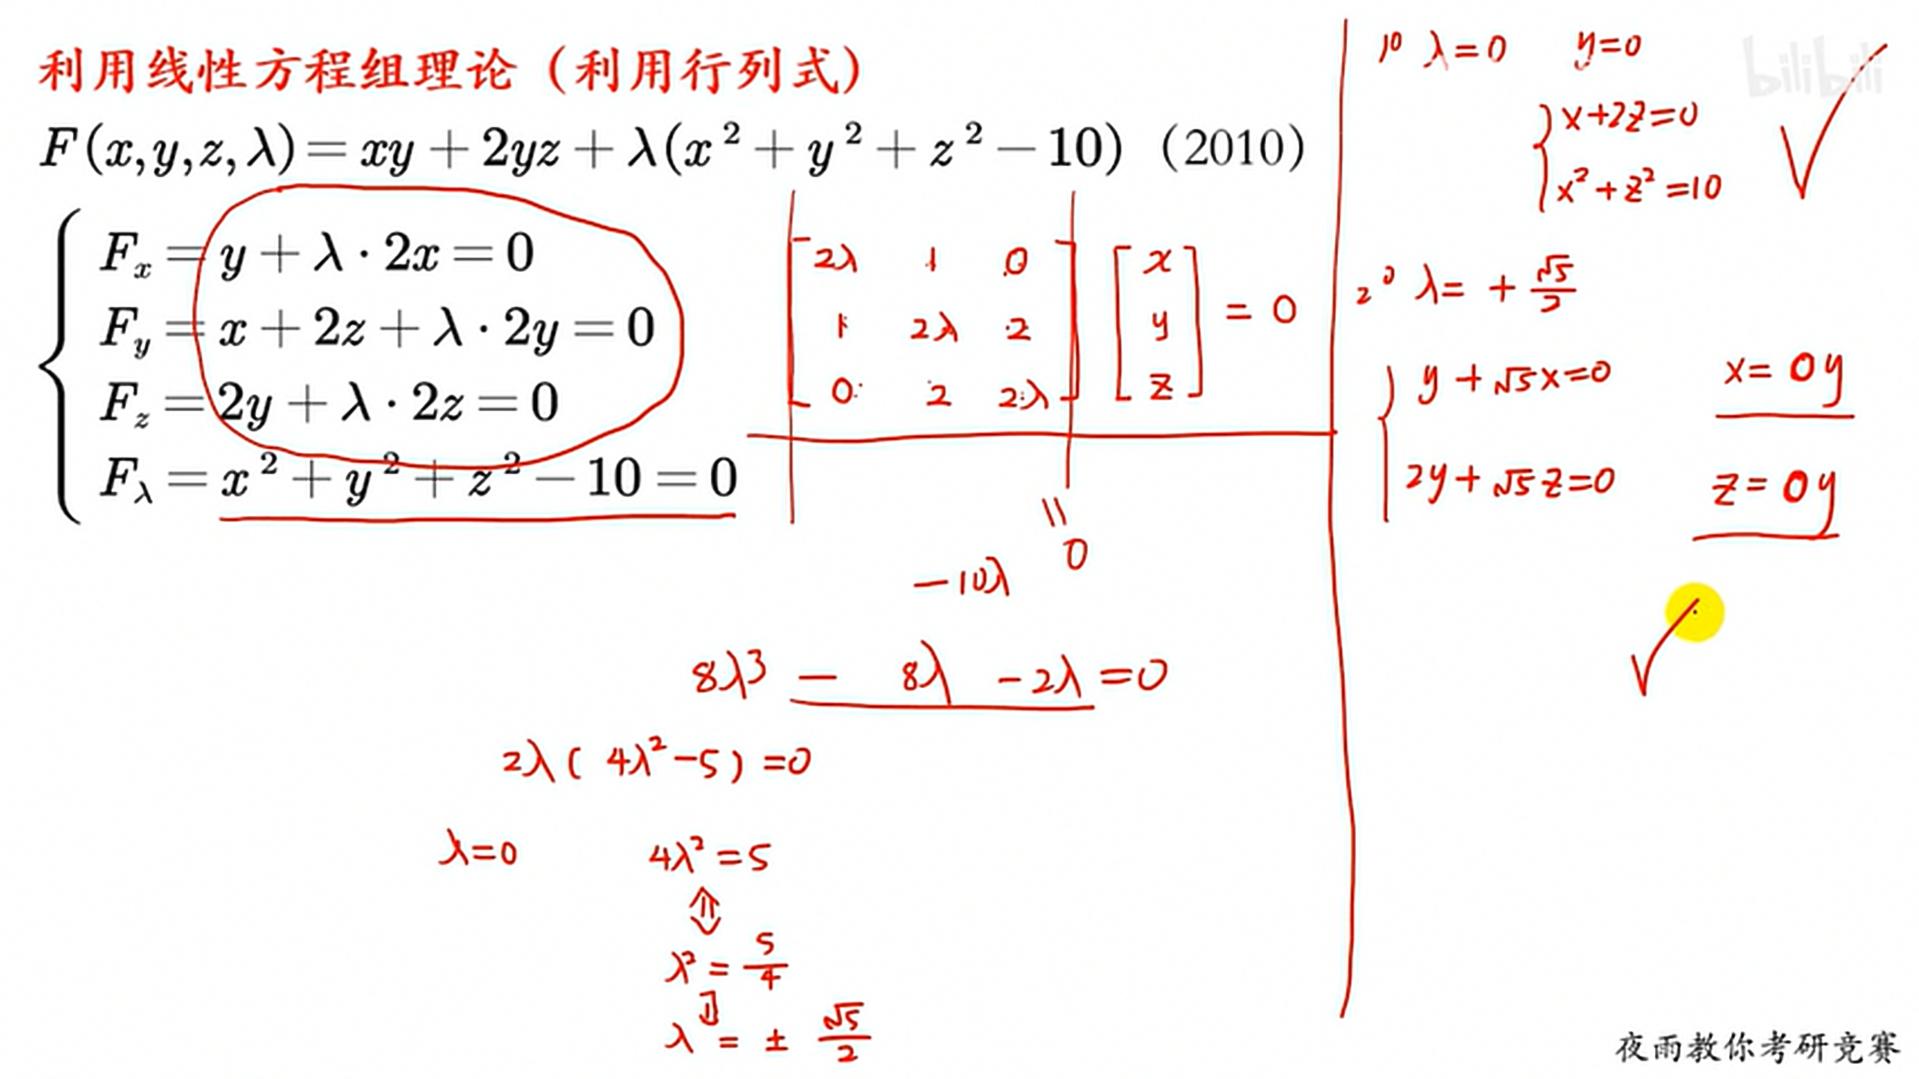 利用线性方程组理论（利用行列式）
F(x,y,z,λ)=xy+2yz+λ(x²+y²+z²−10)（2010）
Fₓ=y+λ·2x=0
F_y=x+2z+λ·2y=0
F_z=2y+λ·2z=0
F_λ=x²+y²+z²−10=0
2λ 1 0
1 2λ 2
0 2 2λ
x
y
z
= 0
=
0
−10λ
8λ³ − 8λ −2λ =0
2λ( 4λ²−5) =0
λ=0 4λ²=5
⇕
λ²= 5/4
⇓
λ = ± √5/2
1⁰ λ=0 y=0
x+2z=0
x²+z²=10
2⁰ λ= + √5/2
y+√5x=0 x= 0y
2y+√5z=0 z= 0y
bilibili
夜雨教你考研竞赛